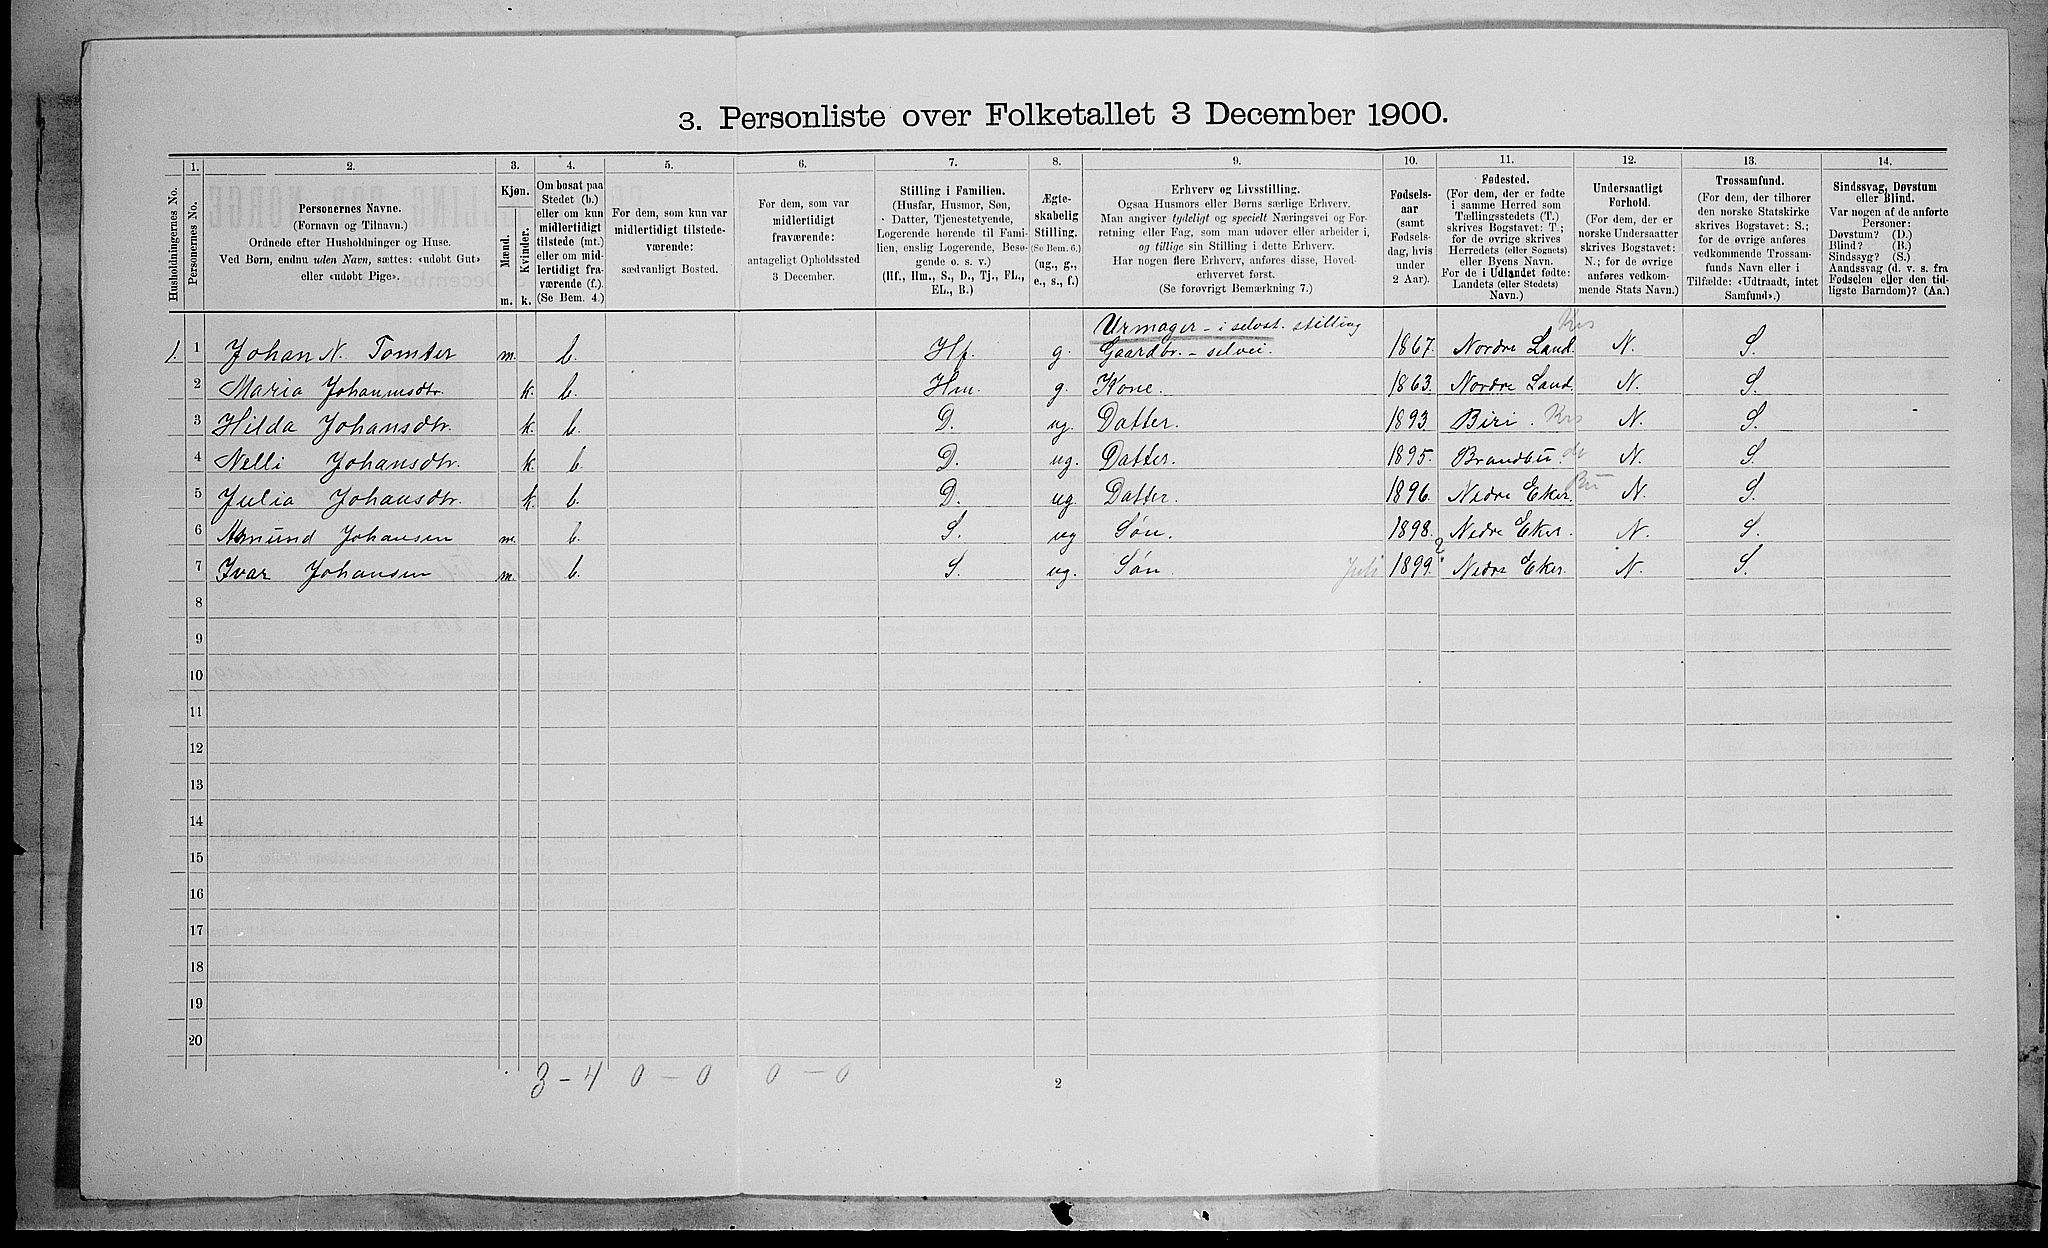 3. Personliste over Folketallet 3 December 1900.
1. 2. 3. 4. 5. 6. 7. 8. 9. 10. 11. 12. 13. 14.
Husholdningernes No.
Personernes No.
Personernes Navne.
(Fornavn og Tilnavn.)
Ordnede efter Husholdninger og Huse.
Ved Børn, endnu uden Navn, sættes: «udøbt Gut»
eller «udøbt Pige».
Kjøn.
Mænd.
Kvinder.
m. k.
Om bosat paa
Stedet (b.)
eller om kun
midlertidigt
tilstede (mt.)
eller om mid-
lertidigt fra-
værende (f.).
(Se Bem. 4.)
For dem, som kun var
midlertidigt tilstede-
værende:
sædvanligt Bosted.
For dem, som var
midlertidigt
fraværende:
antageligt Opholdssted
3 December.
Stilling i Familien.
(Husfar, Husmor, Søn,
Datter, Tjenestetyende,
Logerende hørende til Fami-
lien, enslig Logerende, Besø-
gende o. s. v.)
(Hf., Hm., S., D., Tj., FL.,
EL., B.)
Ægte-
skabelig
Stilling.
(Se Bem. 6.)
(ug., g.,
e., s., f.)
Erhverv og Livsstilling.
Ogsaa Husmors eller Børns særlige Erhverv.
Man angiver tydeligt og specielt Næringsvei og For-
retning eller Fag, som man udøver eller arbeider i,
og tillige sin Stilling i dette Erhverv.
Har nogen flere Erhverv, anføres disse, Hoved-
erhvervet først.
(Se forøvrigt Bemærkning 7.)
Fødsels-
aar
(samt
Fødsels-
dag, hvis
under
2 Aar).
Fødested.
(For dem, der er fødte
i samme Herred som
Tællingsstedets (T.)
skrives Bogstavet: T.;
for de øvrige skrives
Herredets (eller Sognets)
eller Byens Navn.
For de i Udlandet fødte:
Landets (eller Stedets)
Navn.)
Undersaatligt
Forhold.
(For dem, der er
norske Undersaatter
skrives Bogstavet:
N.; for de øvrige
anføres vedkom-
mende Stats Navn.)
Trossamfund.
(For dem, der tilhører
den norske Statskirke
skrives Bogstavet: S.;
for de øvrige anføres
vedkommende Trossam-
funds Navn eller i
Tilfælde: «Udtraadt, intet
Samfund».)
Sindssvag, Døvstum
eller Blind.
Var nogen af de anførte
Personer:
Døvstum? (D.)
Blind? (B.)
Sindssyg? (S.)
Aandssvag (d. v. s. fra
Fødselen eller den tid-
ligste Barndom)? (Aa.)
Urmager - i selvst. stilling Krs
1. 1 Johan N. Tomter m. b. Hf. g. Gaardbr. - selvei. 1867. Nordre Land. N. S.
2 Maria Johannsdtr. k. b. Hm. g. Kone. 1863. Nordre Land. N. S.
3 Hilda Johansdtr. k. b. D. ug. Datter. 1893. Biri. Krs N. S.
4 Nelli Johansdtr. k. b. D. ug. Datter. 1895. Brandbu. do N. S.
5 Julia Johansdtr. k. b. D. ug. Datter. 1896. Nedre Eker. Bu N. S.
6 Amund Johansen m. b. S. ug Søn. 1898. Nedre Eker. N. S.
7 Ivar Johansen m. b. S. ug. Søn. Juli 1899. 2 Nedre Eker. N. S.
8
9
10
11
12
13
14
15
16
17
18
19
20
3 - 4 0 - 0 0 - 0
2